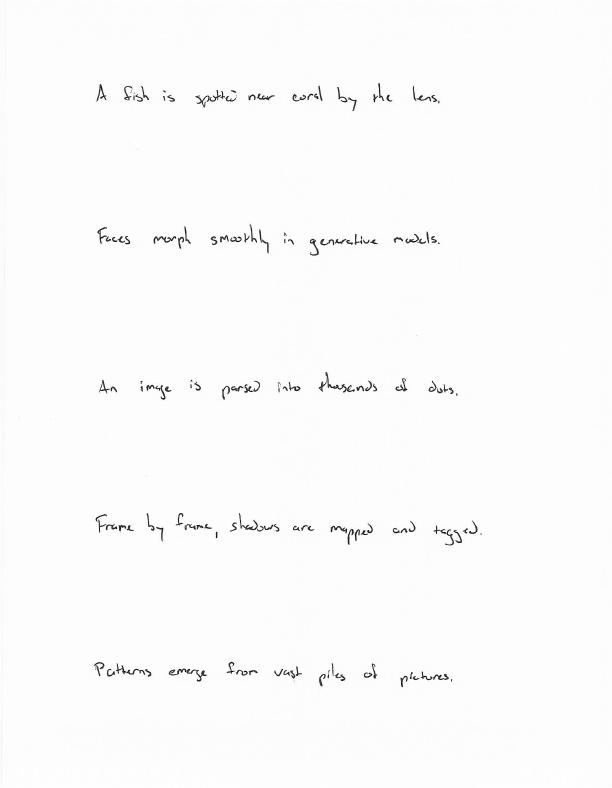 A fish is spotted near coral by the lens.
Faces morph smoothly in generative models.
An image is parsed into thosends of dots.
Frame by frame, shadows are mapped and tagged.
Patterns emerge from vast piles of pictures.